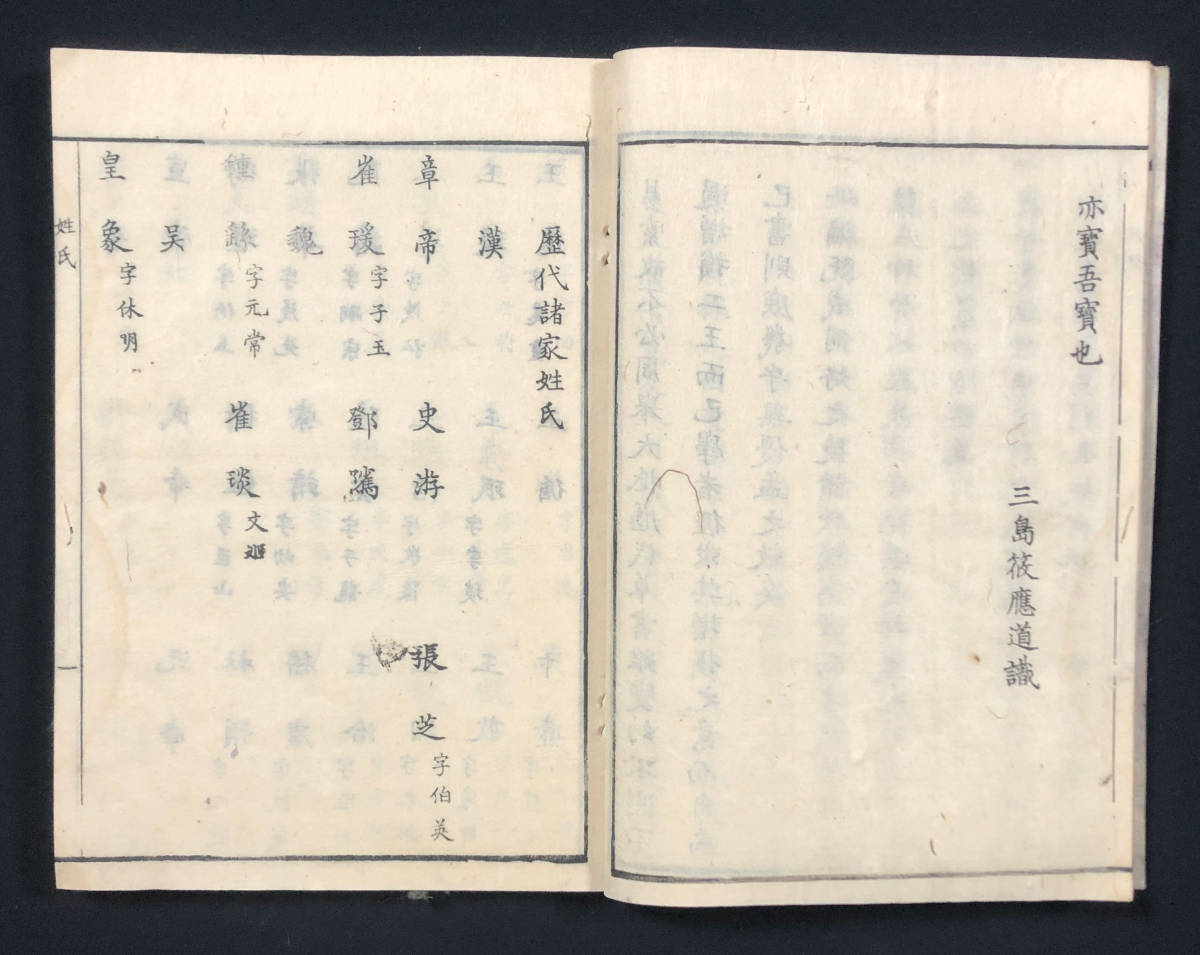 亦寶吾寶也
三島筱應道識
歷代諸家姓氏
漢
章帝 史游 張芝 字伯英
崔瑗 字子玉 鄧隲
魏
鍾繇 字元常 崔琰 文姬
吴
皇象 字休明
姓氏 一